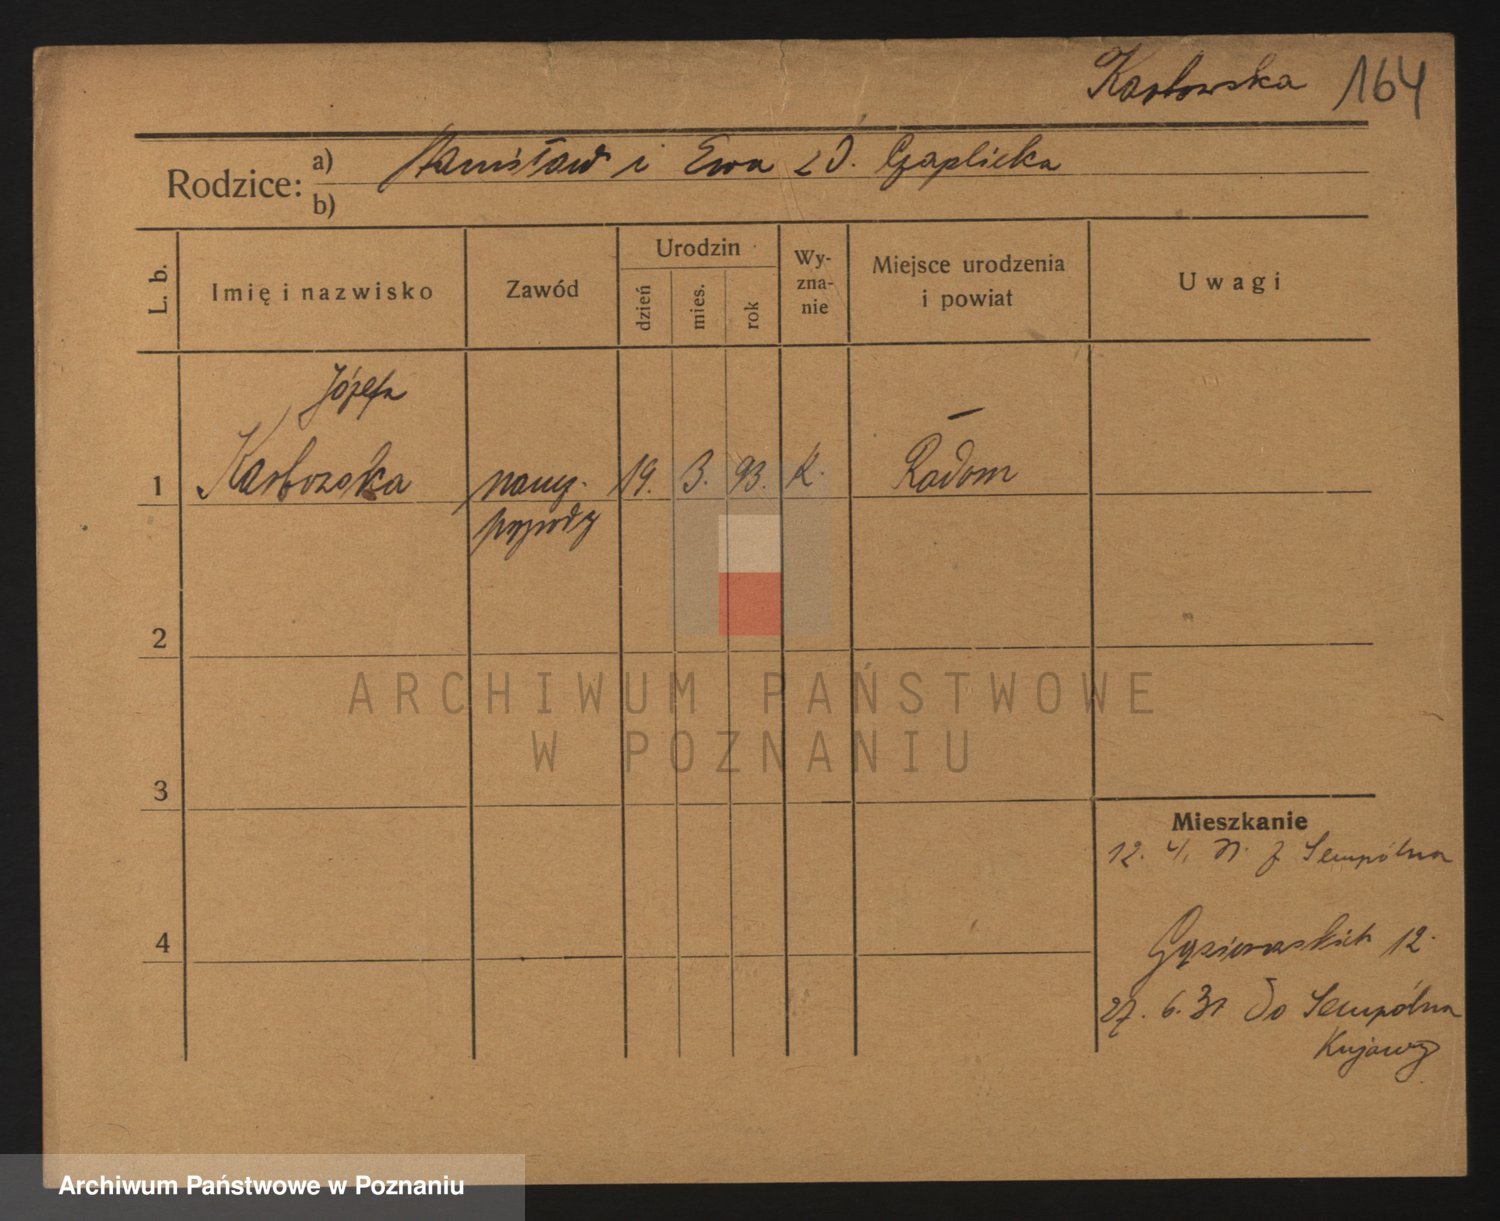 Karłowska 164
Rodzice: a) Stanisław i Ewa z d. Czaplicka
b)
L. b.
Imię i nazwisko
Zawód
Urodzin
dzień
mies.
rok
Wy-
zna-
nie
Miejsce urodzenia
i powiat
Uwagi
Józefa
1 naucz. 19. 3. 93. k. Radom
przyrody
2
3
4
Mieszkanie
12. 4. z Sempólna
Gąsiorowskich 12.
27. 6. 31 do Sempólna
Kujawy
ARCHIWUM PAŃSTWOWE
W POZNANIU
Archiwum Państwowe w Poznaniu